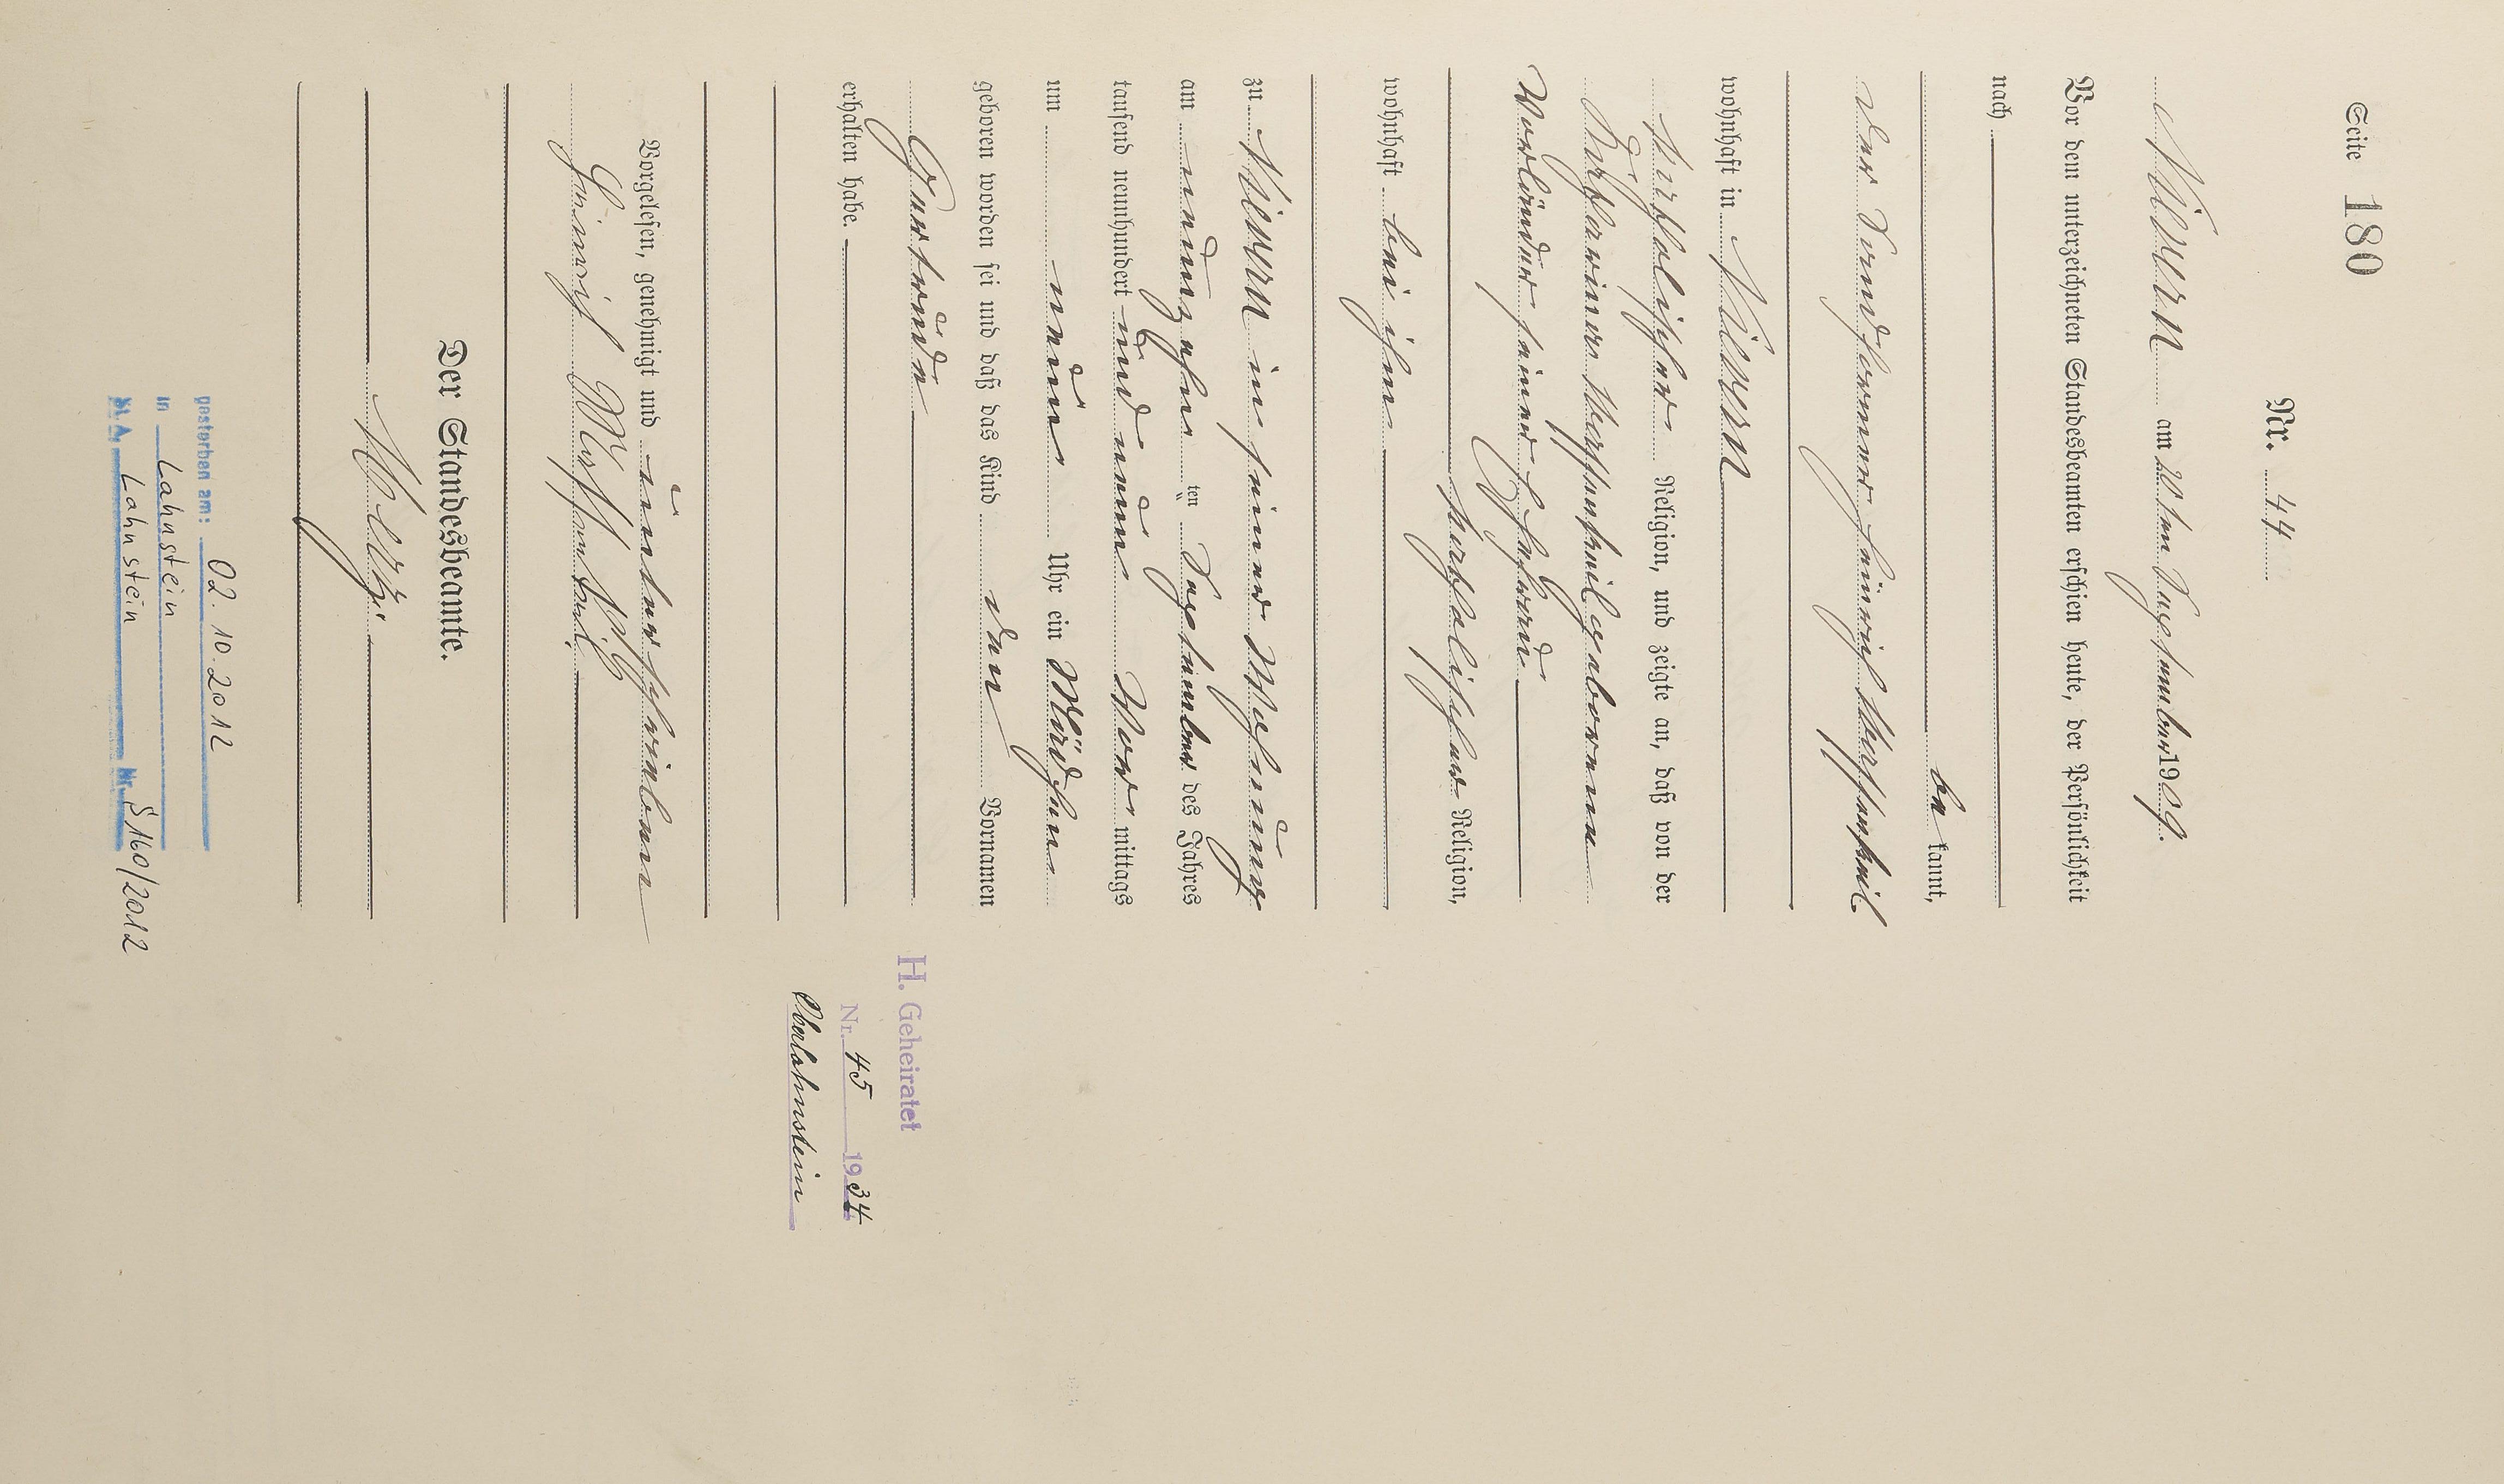 Seite 180
Nr. 44
Nievern am 20ten September 1909.
Vor dem unterzeichneten Standesbeamten erschien heute, der Persönlichkeit
nach
be kannt,
der Sandformer Heinrich
wohnhaft in Nievern
katholischer Religion, und zeigte an, daß von der
Katharina geborenen
Vorländer seiner Ehefrau
katholischer Religion,
wohnhaft bei ihm
zu Nievern in seiner Wohnung
am neunzehnten September des Jahres
tausend neunhundert und neun Vor mittags
um neun Uhr ein Mädchen
geboren worden sei und daß das Kind den Vornamen
Gertrude
erhalten habe.
Vorgelesen, genehmigt und unterschrieben
Heinrich
Der Standesbeamte.
H. Geheiratet
Nr. 45 1934
Oberlahnstein
gestorben am: 02.10.2012
in Lahnstein
St. A. Lahnstein Nr. S 160/2012